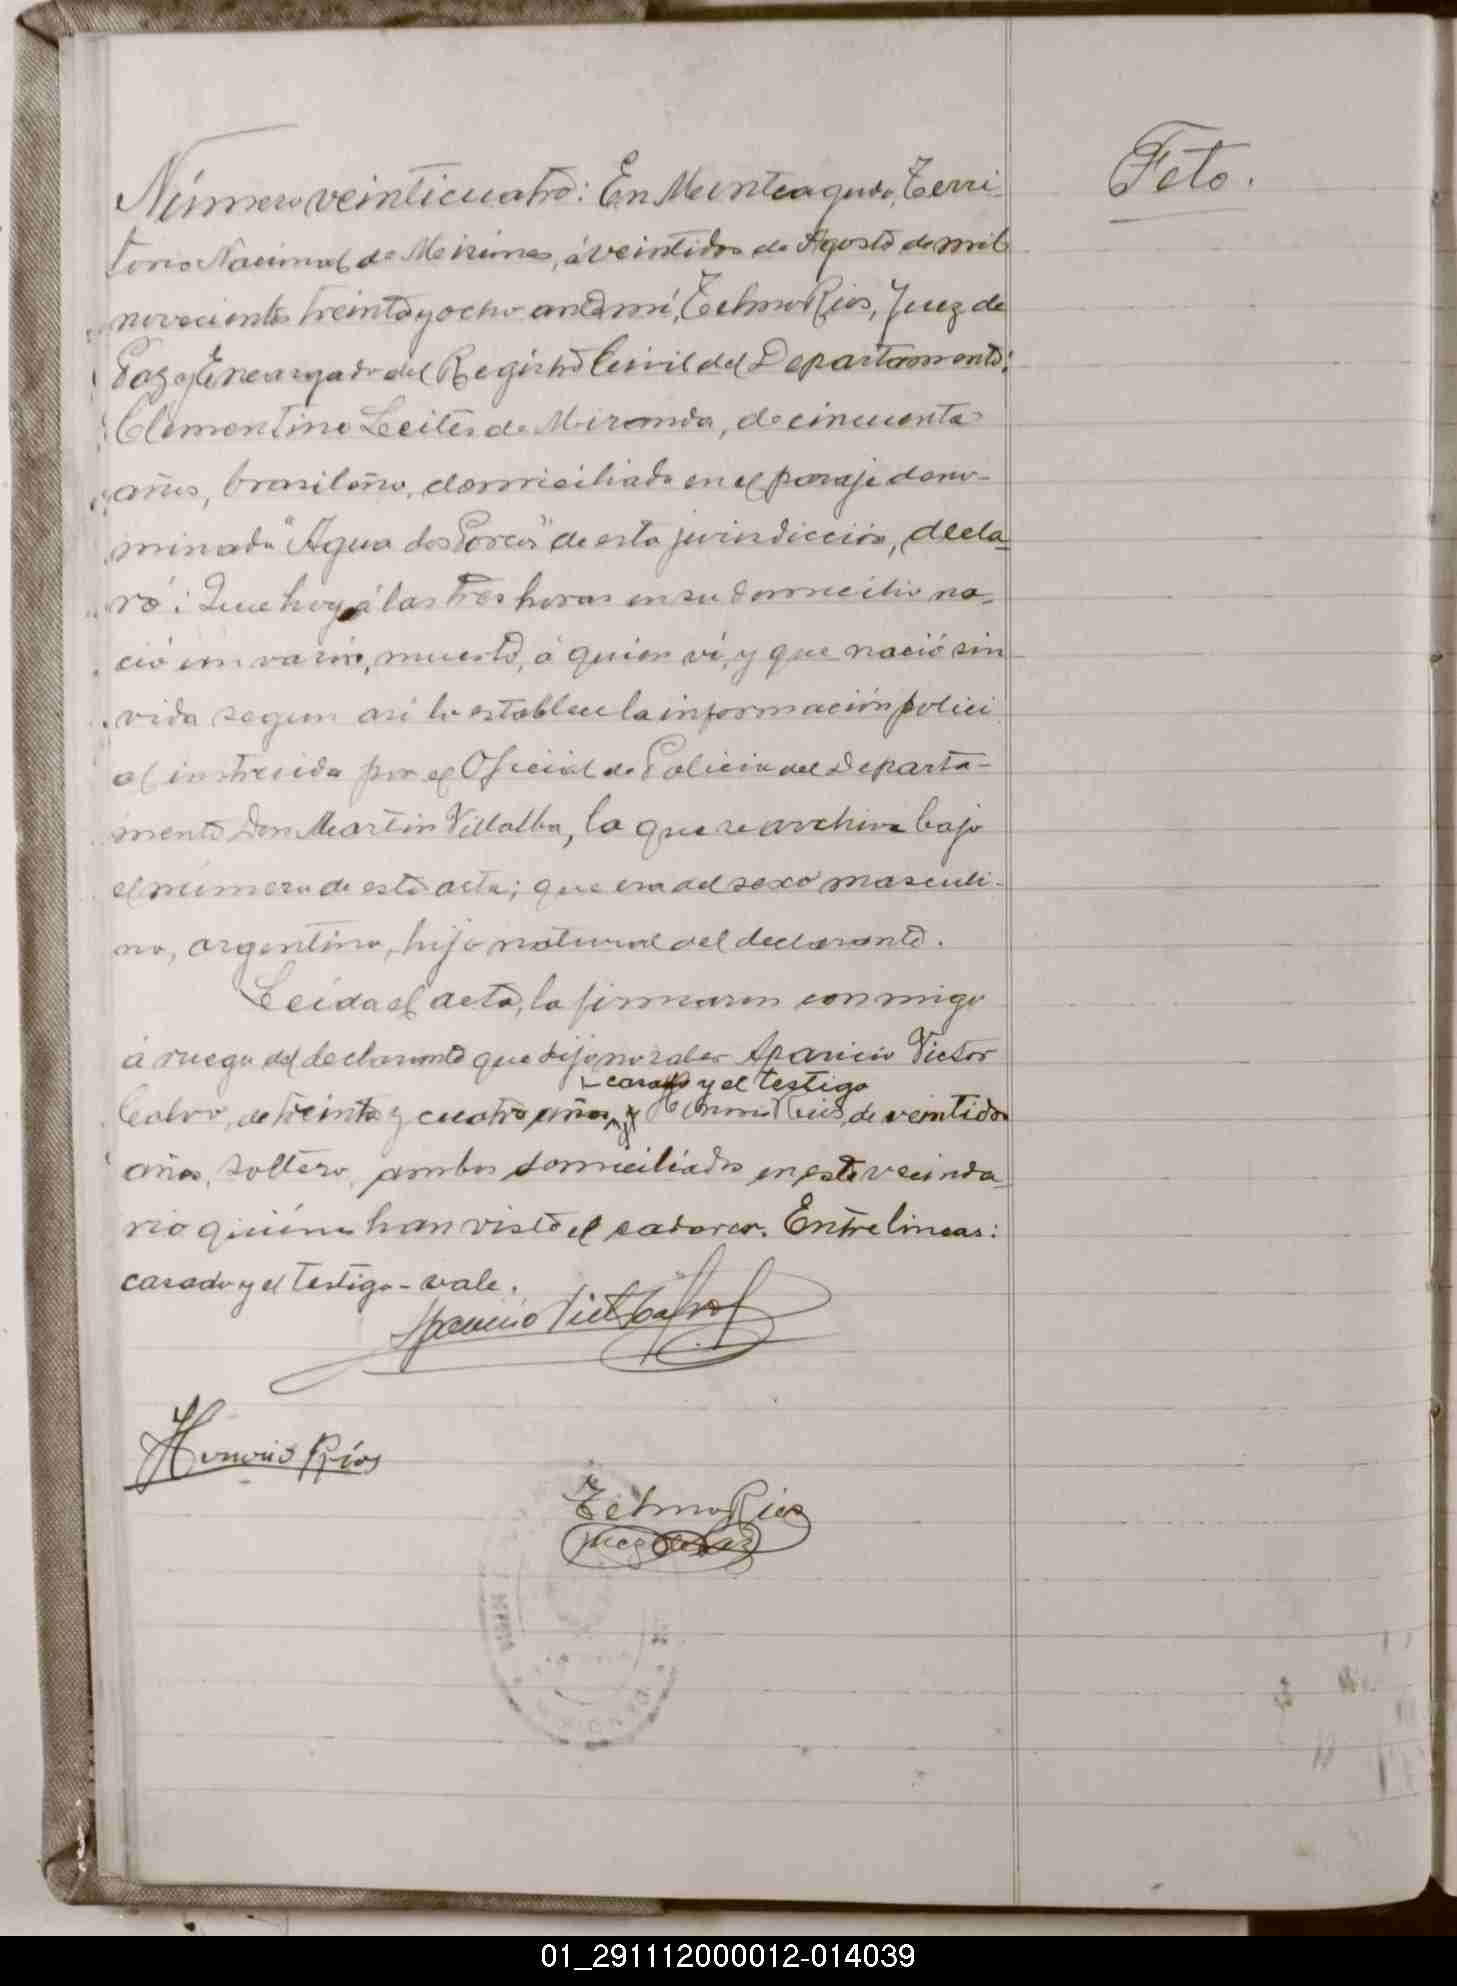 Feto.
Número veinticuatro: En Monteagudo, Terri-
torio Nacional de Misiones, á veintidos de Agosto de mil
novecientos treinta y ocho ante mí, Telmo Rios, Juez de
Paz y Encargado del Registro Civil del Departamento:
Clementino Leites de Miranda, de cincuenta
años, brasileño, domiciliado en el paraje deno-
minado "Agua dos Porcos" de esta jurisdicción, decla-
ró: Que hoy á las tres horas en su domicilio na-
ció un varón, muerto, á quien ví, y que nació sin
vida segun asi lo establece la información polici
al instruida por el Oficial de Policia del Departa-
mento Don Martin Villalba, la que se archiva bajo
el número de esta acta; que era del sexo masculi-
no, argentino, hijo natural del declarante.
Leída el acta, la firmaron conmigo
á ruego del declarante que dijo no saber Aparicio Victor
casado y el testigo
Calvo, de treinta y cuatro años, y Honorio Rios, de veintidos
años, soltero, ambos domiciliados en este vecinda-
rio quienes han visto el cadaver. Entre lineas:
casado y el testigo - vale.
Aparicio Vict Calvo
Honorio Ríos
Telmo Rios
Juez de Paz
01_291112000012-014039